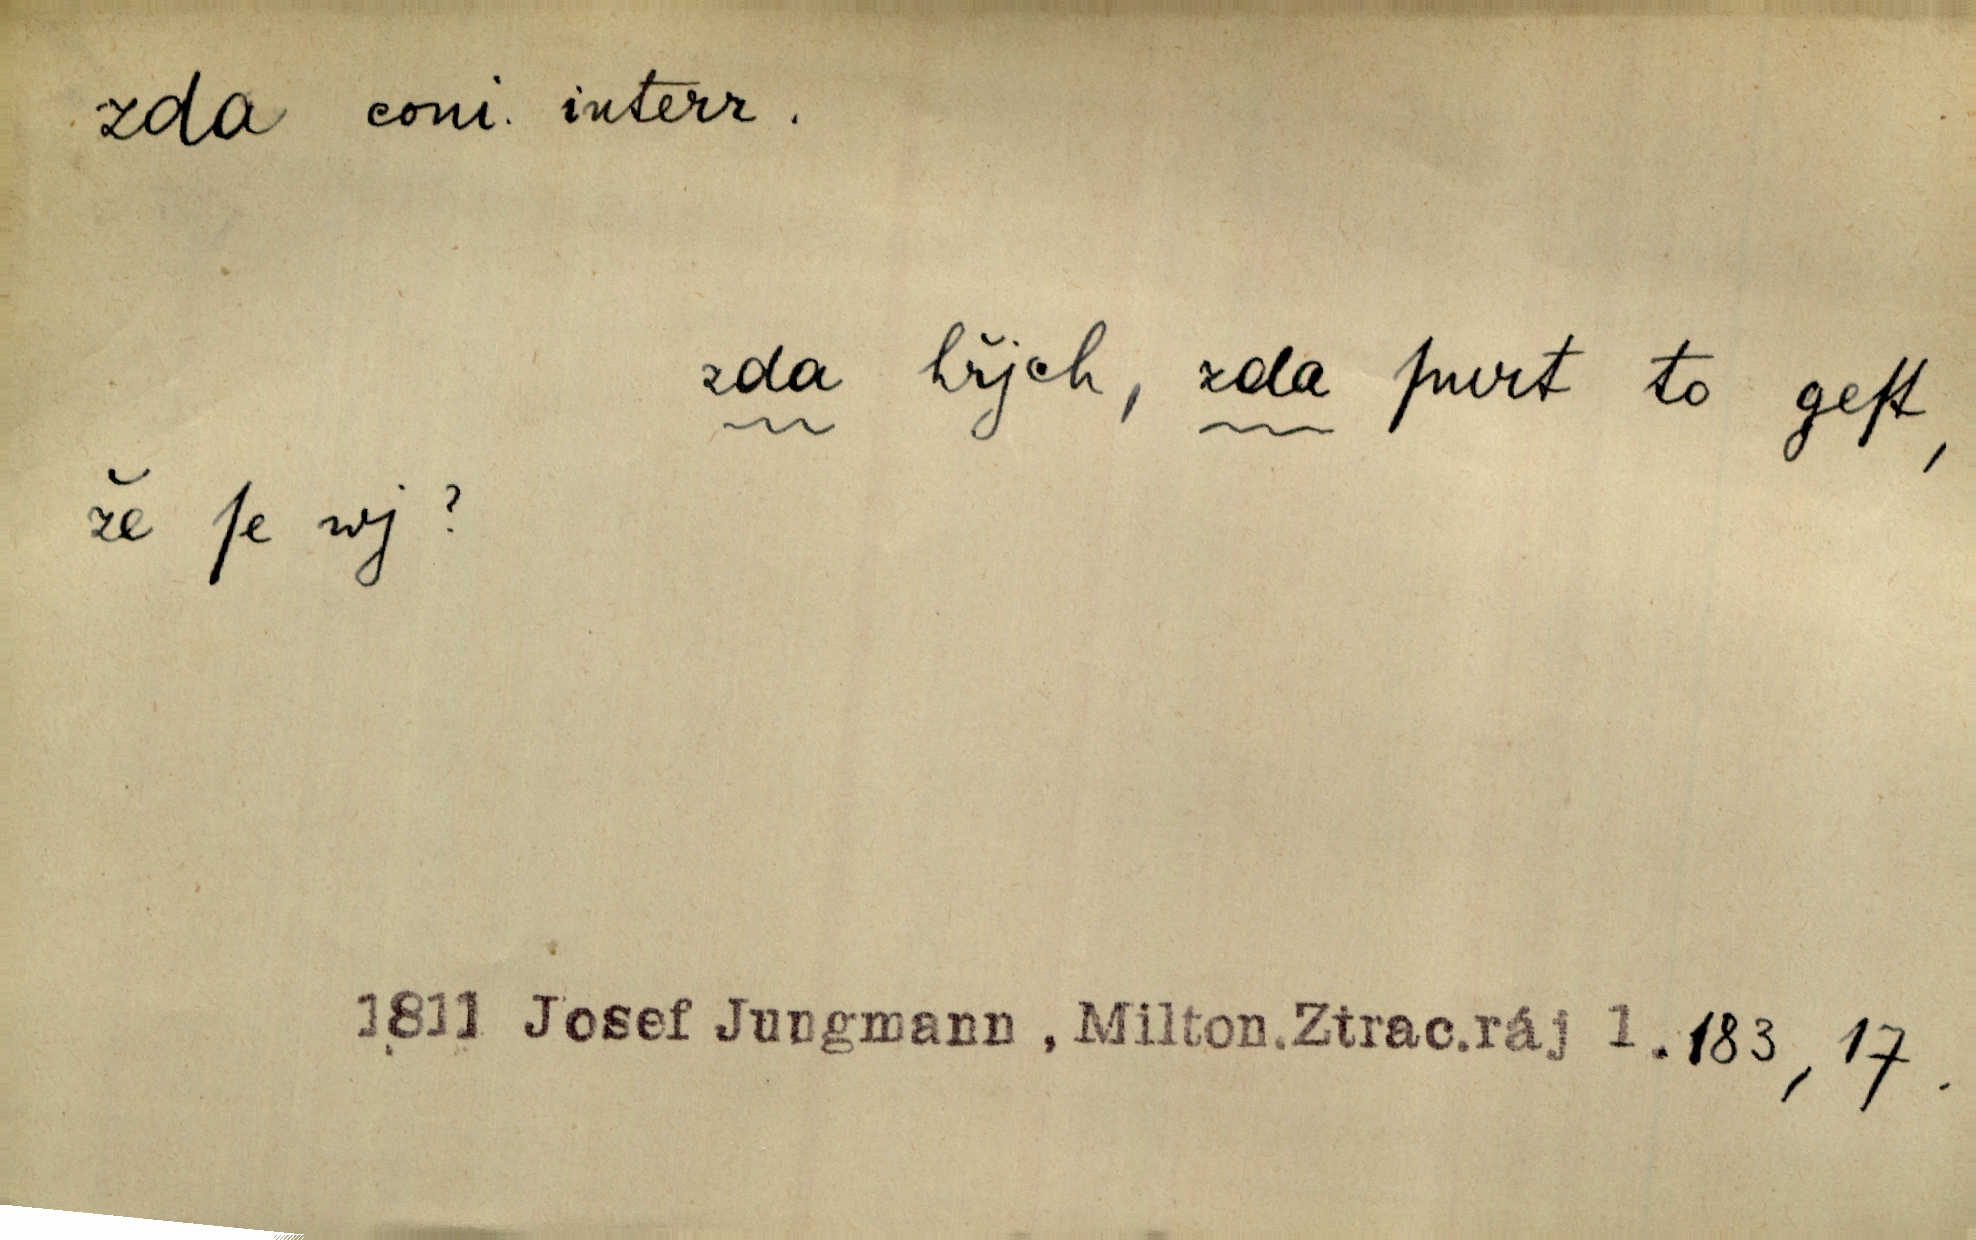 zda coni. interr.
zda hřjch, zda ſmrt to geſt,
že ſe wj?
1811 Josef Jungmann, Milton.Ztrac.ráj 1.183, 17.